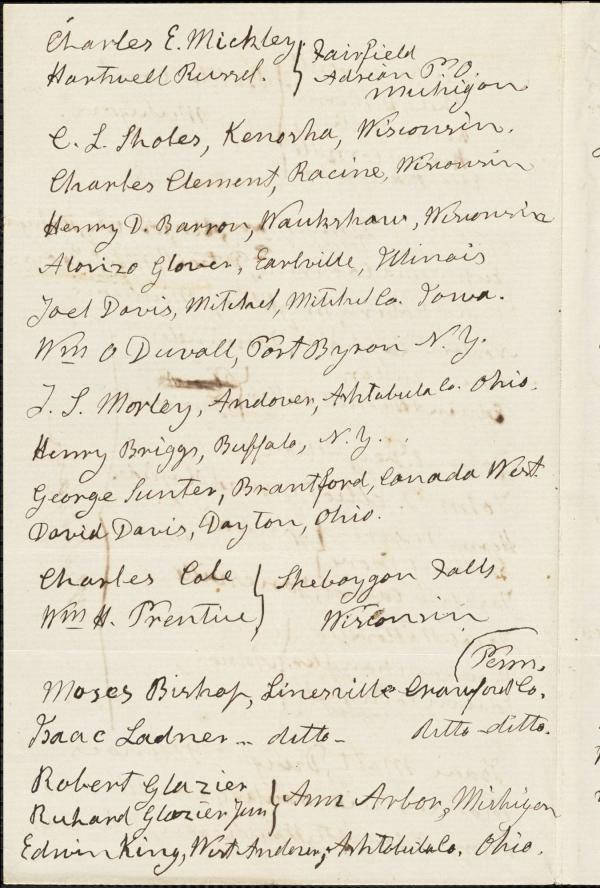 Charles E. Mickley } Fairfield
Hartwell Russel. } Adrian P.O.
Michigan
C. L. Sholes, Kenosha, Wisconsin.
Charles Clement, Racine, Wisconsin
Henry D. Barron, Waukshaw, Wisconsin
Alonzo Glover, Earlville, Illinois
Joel Davis, Mitchel, Mitchel Co. Iowa.
Wm O Duvall, Port Byron N. Y.
J. S. Morley, Andover, Ashtabula Co. Ohio.
Henry Briggs, Buffalo, N. Y.
George Sunter, Brantford, Canada West
David Davis, Dayton, Ohio.
Charles Cole } Sheboygan Falls
Wm H. Prentice } Wisconsin
(Penn.
Moses Bishop, Linesville Crawford Co.
Isaac Ladner -- ditto - ditto - ditto.
Robert Glazier } Ann Arbor, Michigan
Richard Glazier Jun }
Edwin King, West Andover, Ashtabula Co. Ohio.